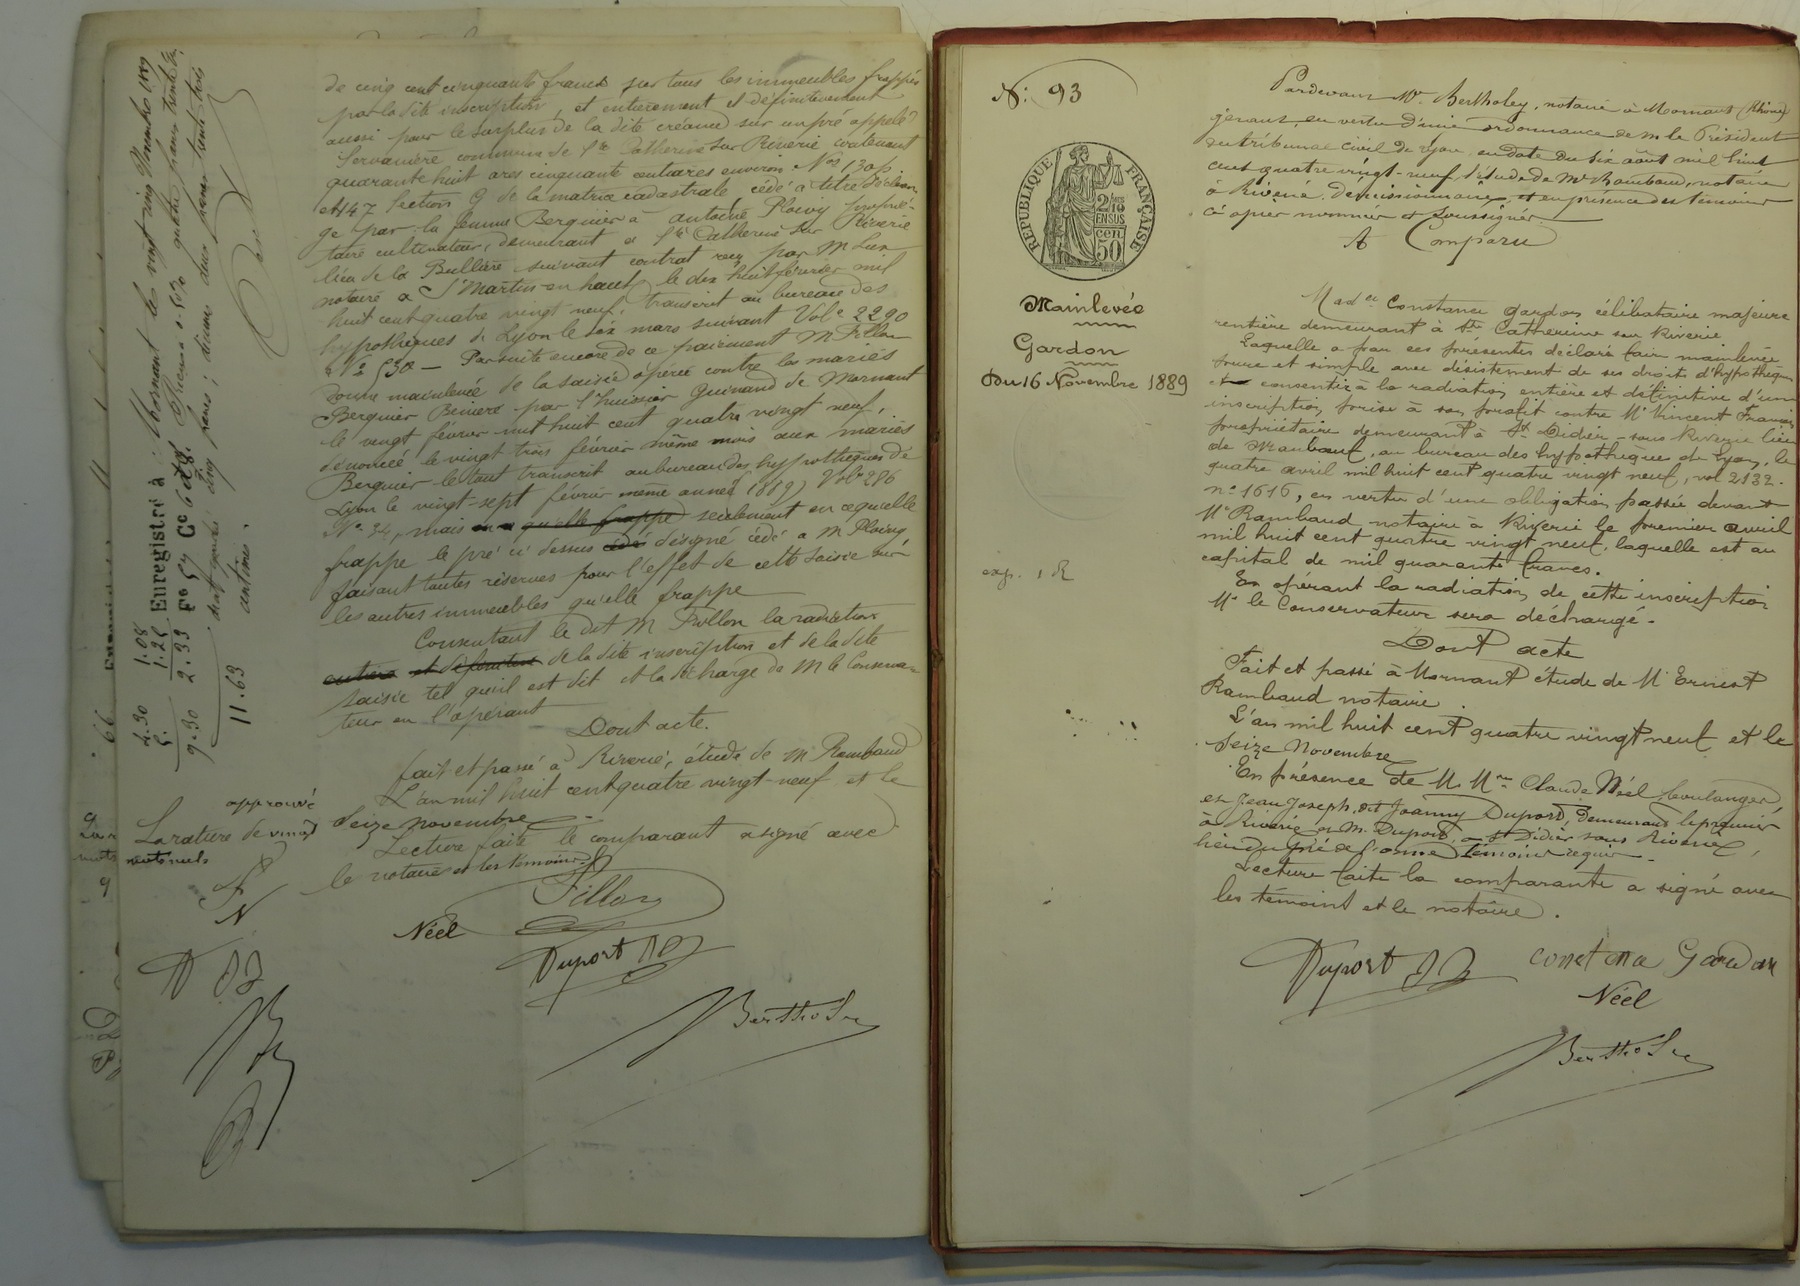 de cinq cent cinquante francs sur tous les immeubles frappés
par la dite inscription, et entièrement et définitivement
aussi pour le surplus de la dite créance sur un pré appelé
Servanière commune de Ste Catherine sur Riverie contenant
quarante huit ares cinquante centiares environ Nos 130p
et 147 Section G de la matrice cadastrale, cédé à titre d'échan-
ge par la femme Berquier à antoine Ploivy proprié-
taire cultivateur, demeurant à Ste Catherine sur Riverie
lieu de la Bullière suivant contrat reçu par M
notaire à St Martin-en-haut, le dix huit février mil
huit cent quatre vingt neuf, transcrit au bureau des
hypothèques de Lyon le six mars suivant Vole 2290
No 530 — Par suite encore de ce paiement M Fillon
donne mainlevée de la saisie opérée contre les mariés
Berquier par l'huissier Guinand de Mornant
le vingt février mil huit cent quatre vingt neuf,
dénoncée le vingt trois février même mois aux mariés
Berquier le tout transcrit au bureau des hypothèques de
Lyon le vingt-sept février même année (1889) Vole 286
No 34, mais en a quelle frappe seulement en ce qu'elle
frappe le pré ci dessus cédé désigné cédé à M Ploivy
faisant toutes réserves pour l'effet de cette saisie sur
les autres immeubles qu'elle frappe
Consentant le dit M Fillon la radiation
entière et définitive de la dite inscription et de la dite
saisie tel qu'il est dit et la décharge de M le Conserva-
teur en l'opérant
Dont acte.
fait et passé à Riverie, étude de M Rambaud
L'an mil huit cent quatre vingt-neuf et le
seize novembre
Lecture faite le comparant a signé avec
le notaire et les témoins
Fillon
Néel
Duport
Bertholey
approuvé
La rature de
mots nuls
N
Enregistré à Mornant le vingt cinq Novembre 1889
Fo 57 Co 6
centimes.
1.08
1.25
2.33
4.30
5.
9.30
2.33
11.63
No: 93
RÉPUBLIQUE FRANÇAISE
2/10
EN SUS
50 cen
Mainlevée
Gardon
Du 16 Novembre 1889
exp. 1 R
Pardevant Me Bertholey, notaire à Mornant (Rhône)
gérant, en vertu d'une ordonnance de M le Président
du tribunal civil de Lyon, en date du six août mil huit
cent quatre vingt-neuf l'étude de Me Rambaud, notaire
à Riverie, démissionnaire, et en présence des témoins
ci après nommés et soussignés
A Comparu
Madelle Constance Gardon célibataire majeure
rentière demeurant à Ste Catherine sur Riverie
Laquelle a par ces présentes déclaré faire mainlevée
pure et simple avec désistement de ses droits d'hypothèque
et consentir à la radiation entière et définitive d'une
inscription prise à son profit contre Mr Vincent François
propriétaire demeurant à St Didier-sous Riverie lieu
de Maubaut, au bureau des hypothèques de Lyon, le
quatre avril mil huit cent quatre vingt neuf, vol 2132.
no 1616, en vertu d'une obligation passée devant
Me Rambaud notaire à Riverie le premier avril
mil huit cent quatre vingt neuf, laquelle est au
capital de mil quarante francs.
En opérant la radiation de cette inscription
Mr le Conservateur sera déchargé.
Dont acte
Fait et passé à Mornant étude de Me Ernest
Rambaud notaire.
L'an mil huit cent quatre vingt neuf et le
seize Novembre
En présence de M Mrs Claude Néel boulanger,
et Jean Joseph dit Joanny Duport, demeurant le premier
à Riverie et M. Duport à St Didier sous Riverie,
lieu du pré de l'orme témoins requis.
Lecture faite la comparante a signé avec
les témoins et le notaire.
Duport
Constance Gardon
Néel
Bertholey